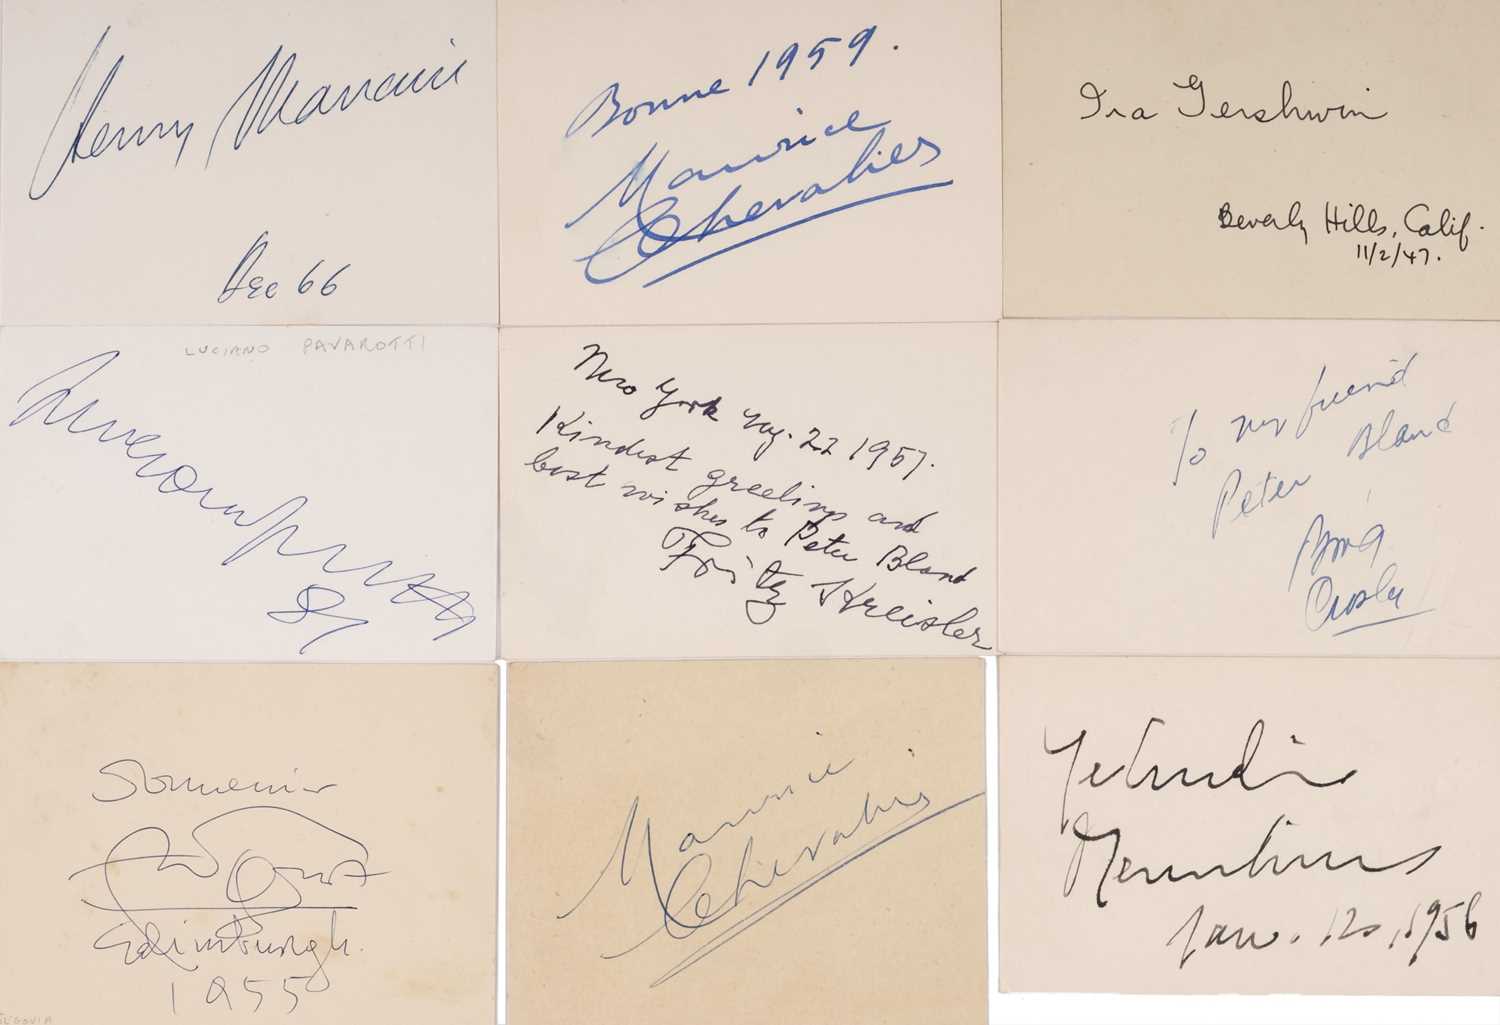 Henry Mancini
Dec 66
Bonne 1959.
Maurice
Chevalier
Ira Gershwin
Beverly Hills, Calif.
11/2/47.
LUCIANO PAVAROTTI
New York 22 1957.
Kindest greetings and
best wishes to Peter Bland
Fritz Kreisler
To my friend
Peter Bland
Bing
Crosby
Souvenir
Edinburgh.
1955
SEGOVIA
Maurice
Chevalier
Yehudi
Menuhin
Jan. 12, 1956